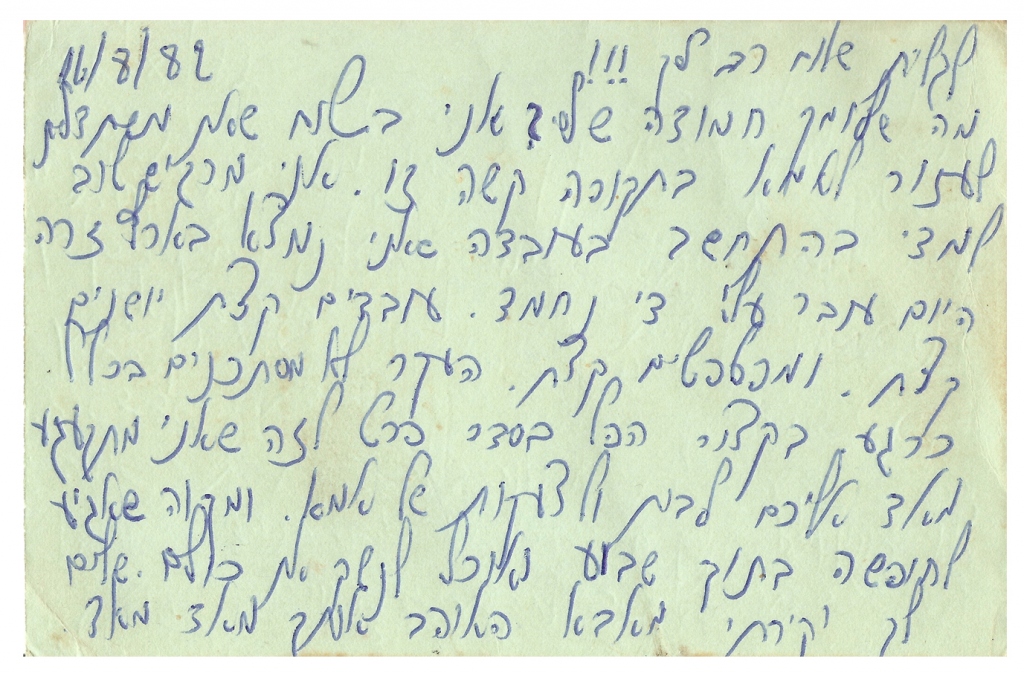 שלום רב לך !!! 14/8/82
מה שלומך חמודה שלי? אני בטוח שאת משתדלת
לעזור לאמא בתקופה קשה זו. אני מרגיש טוב
למדי בהתחשב בעובדה שאני נמצא בארץ זרה
היום עובר עלי די נחמד. עובדים קצת יושנים
קצת. ומפטפטים קצת. העקר לא מסתכנים בכלל.
כרגע בקצור הכל בסדר פרט לזה שאני מתגעגע
מאד אליכם לבית ולצעקות של אמא. ומקוה שאגיע
לחופשה בתוך שבוע ואוכל לנשק את כולם. שלום
לך יקירתי מאבא האוהב אותך מאד מאד